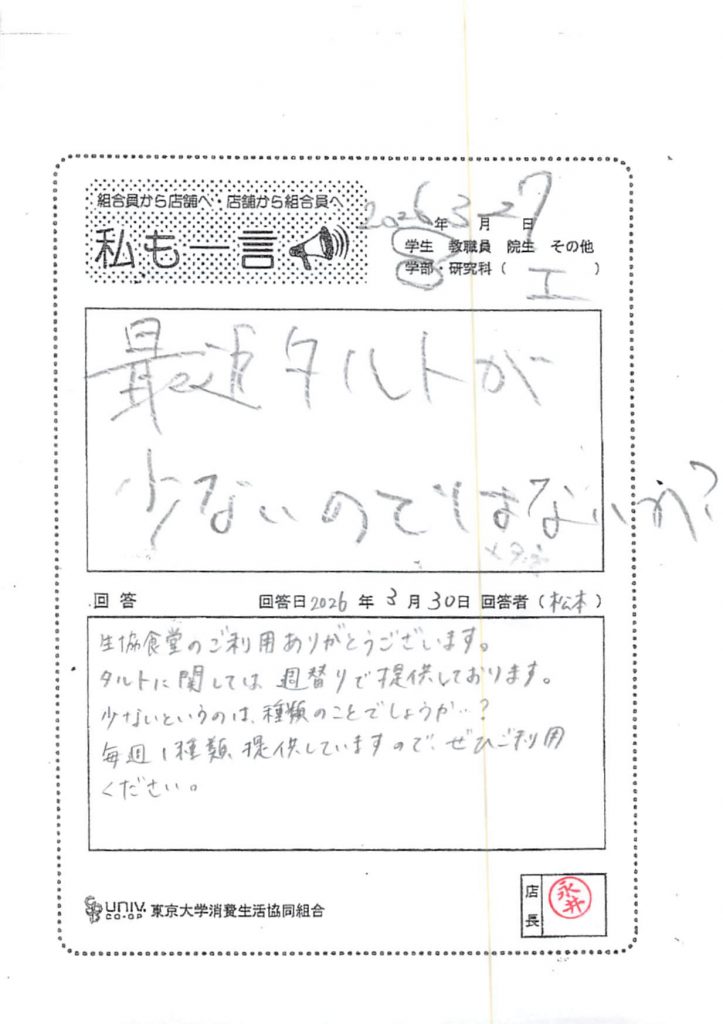 組合員から店舗へ・店舗から組合員へ
私も一言
2026年3月27日
学生 教職員 院生 その他
学部・研究科(工)
最近タルトが
少ないのではないか?
回答 回答日2026年3月30日 回答者(松本)
生協食堂のご利用ありがとうございます。
タルトに関しては、週替りで提供しております。
少ないというのは、種類のことでしょうか…?
毎週1種類、提供していますので、ぜひご利用
ください。
UNIV. CO-OP 東京大学消費生活協同組合
店長 永井